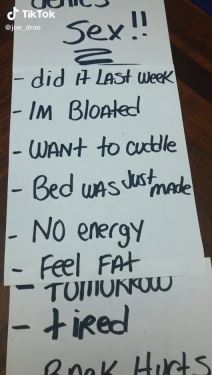 TikTok
@joe_drae
denies
Sex!!
- did it LAST week
- IM BloAted
- WANT to cuddle
- Bed WAS Just MADE
- NO energy
- Feel FAt
- TOMORROW
- tired
BACK Hurts